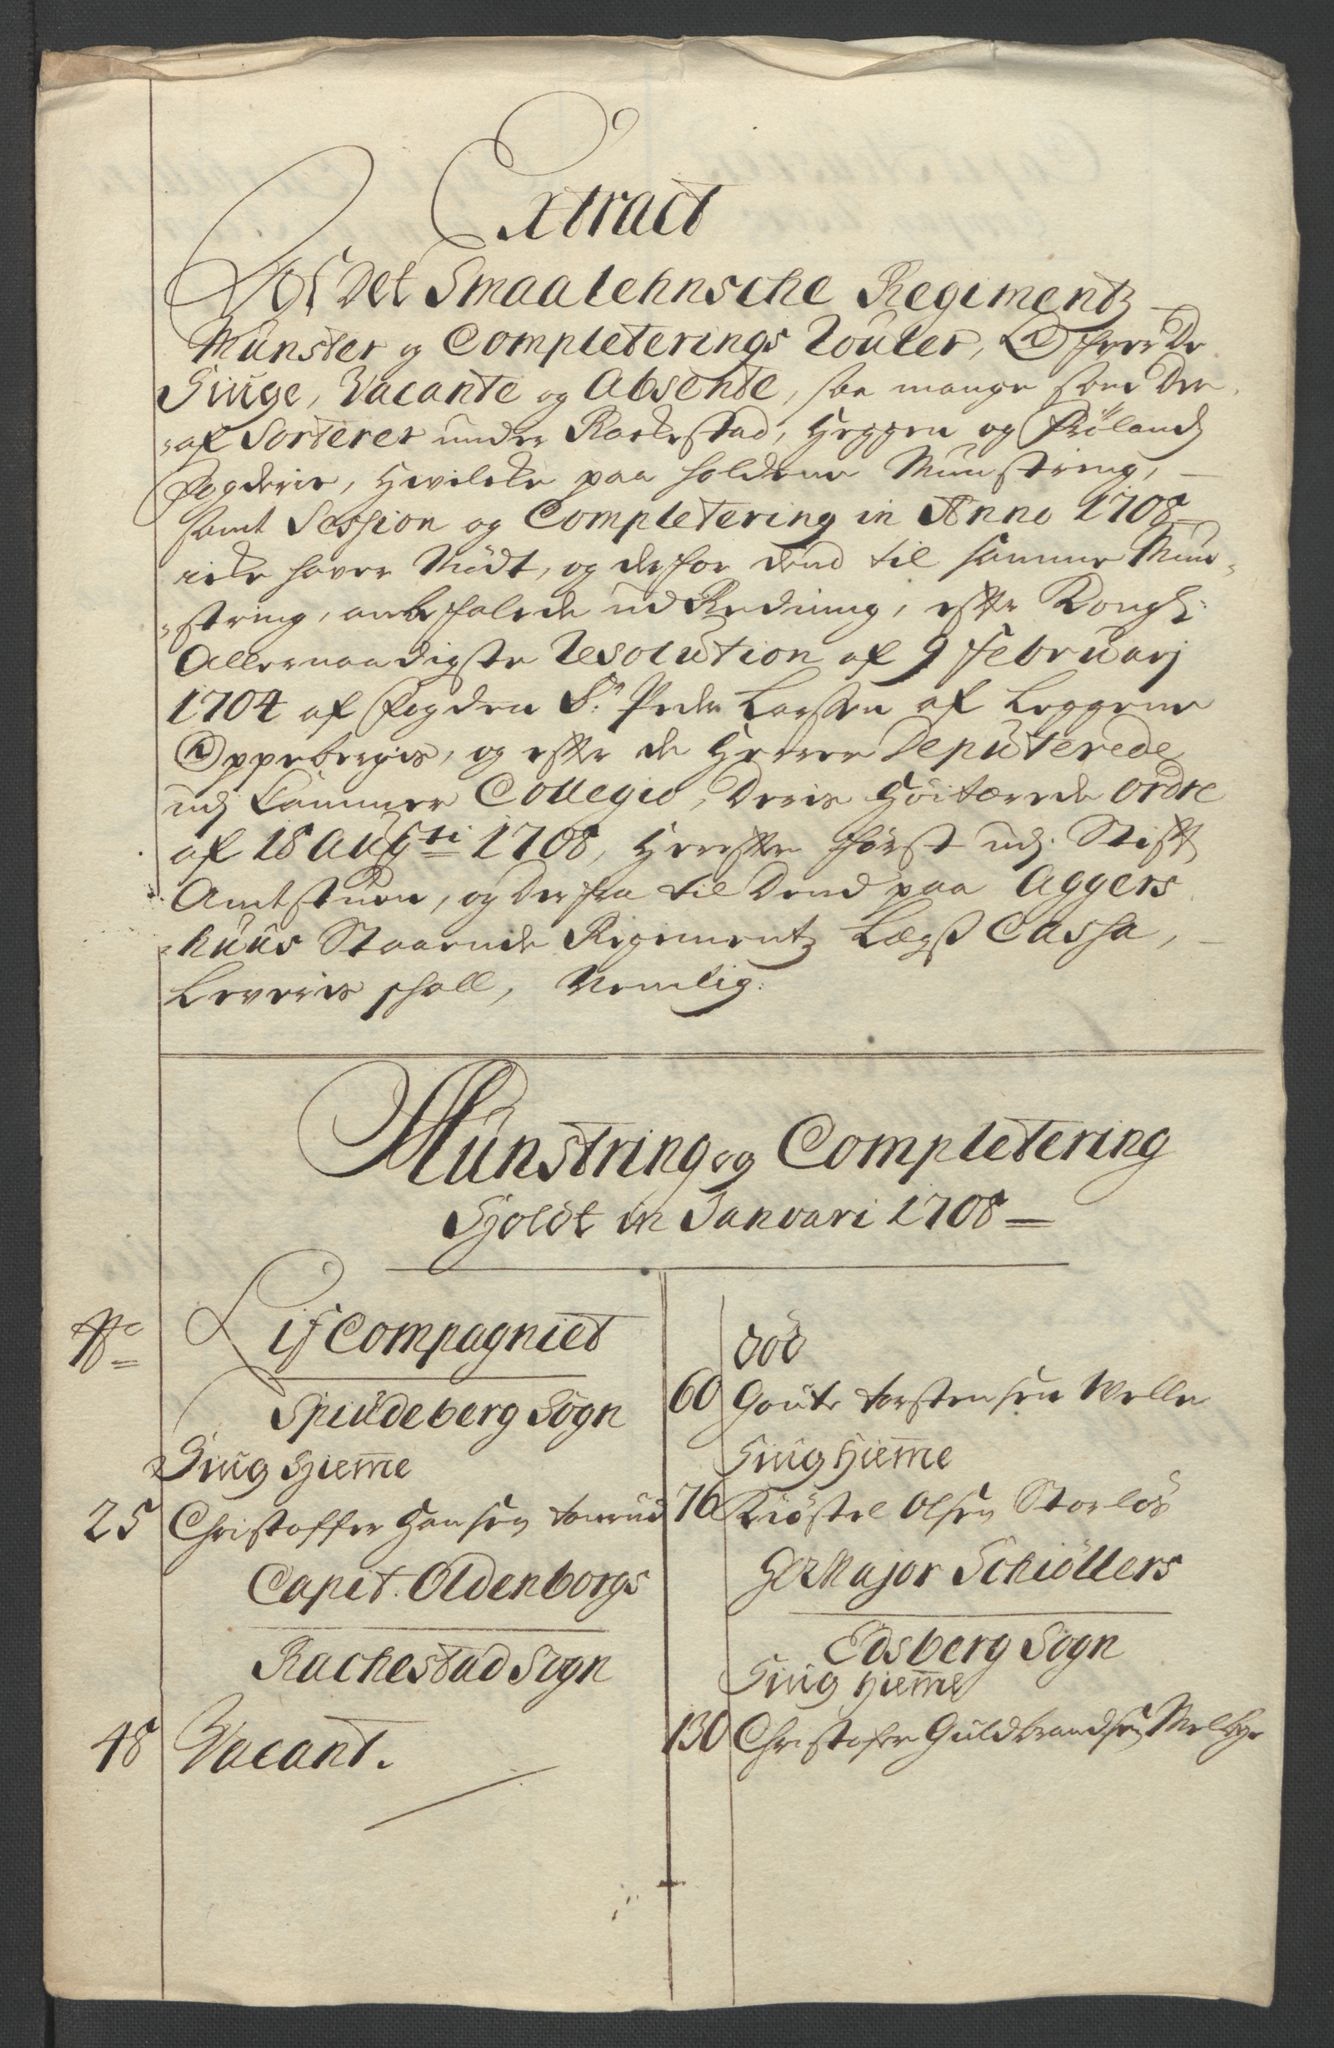 Extract
Af Det Smaalehnsche Regimentz
Munster og Completerings Roller, Ofver De
Siuge, Vacante og Absente, saa mange som Der
af Sorterer under Rachestad, Heggen og Frölandz
Fogderie, Hvilcke paa holdene Munstring,
samt Session og Completering in Anno 1708
icke hafver Mödt, og derfor dend til samme Mun-
string, anbefalede udRedning, efter Kongl:
Allernaadigste Resolution af 9 Februarj
1704 af Fogden Sr. Peder Larssen af Leggene
Oppebergis, og efter de Herrer Deputerede
udj Cammer Collegio, Deris Höitærede Ordre
af 18 Augusti 1708, Herefter först udj Stift
Amtstuen, og Derfra til Dend paa Aggers
huus Staaende Regimentz Lægß Cassa,
Leveris schall, Nemlig:
Munstring og Completering
Holdt in Januari 1708
No
Lif Compagniet
Spiudeberg Sogn
Siug Hiem̄e
25 Christoffer Hansen
Capit. Oldenborgs
Rachestad Sogn
48 Vacant.
död
60 Goute Torstensen Welle
Siug Hiem̄e
76 Kiöstel Olsen Storlös
Hr Major Schiöllers
Edsberg Sogn
Siug Hiem̄e
130 Christofer Guldbrandsen Melbye